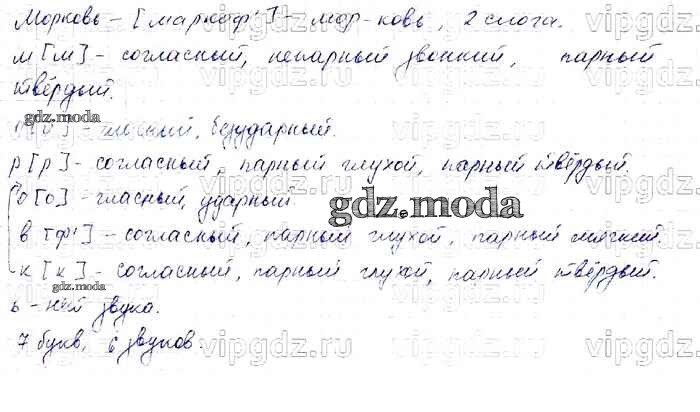 Морковь - [маркоф'] - мор-ковь, 2 слога.
м [м] - согласный, непарный звонкий, парный
твёрдый.
gdz.moda
- гласный, безударный.
р [р] - согласный, парный глухой, парный твёрдый.
о [о] - гласный, ударный
gdz.moda
в [ф'] - согласный, парный глухой, парный мягкий.
к [к] - согласный, парный глухой, парный твёрдый.
gdz.moda
ь - нет звука.
7 букв, 6 звуков.
vipgdz.ru